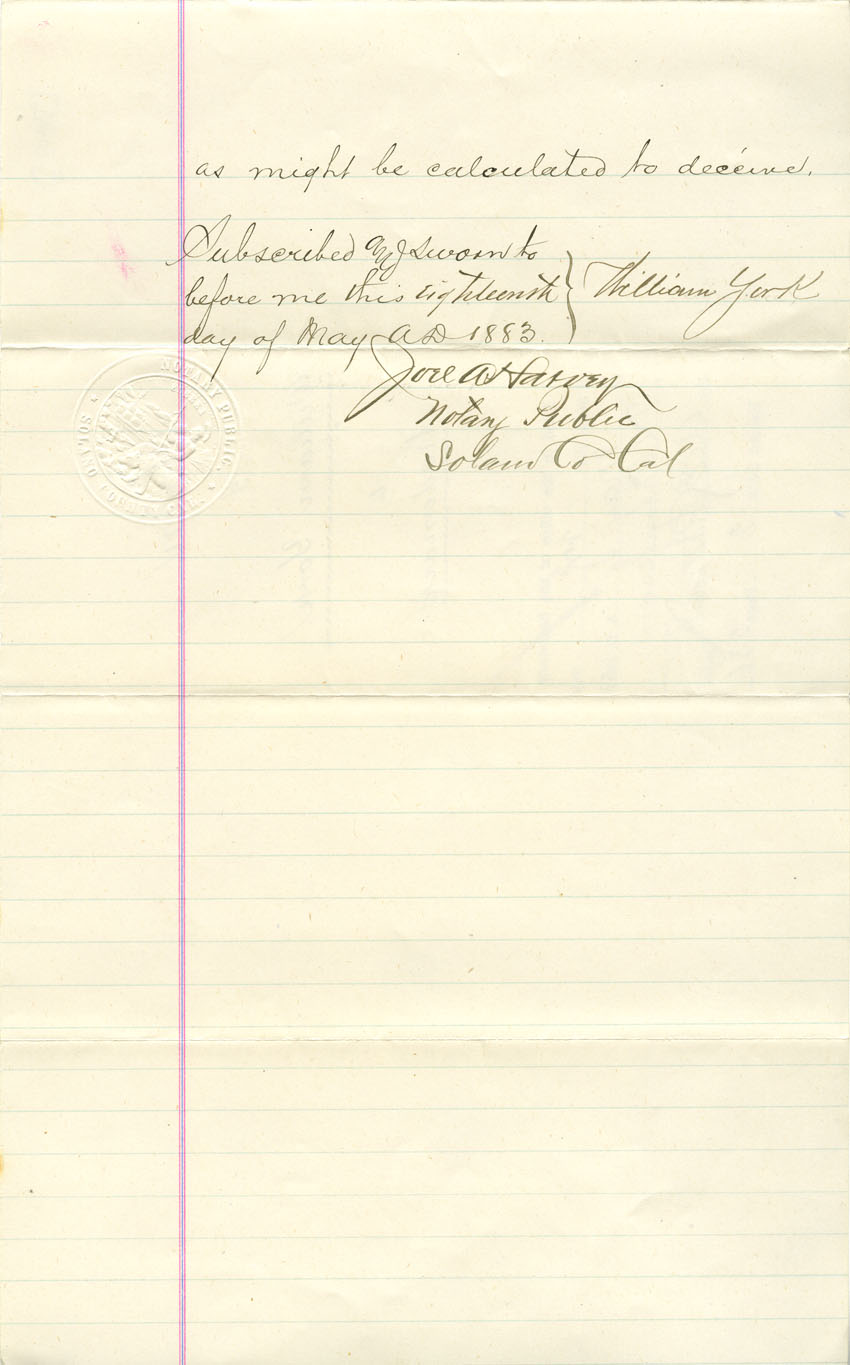 as might be calculated to deceive.
Subscribed and Sworn to
before me this Eighteenth } William York
day of May A D 1883.
Joel A Harvey
Notary Public
Solano Co Cal
NOTARY PUBLIC
SOLANO COUNTY CAL.